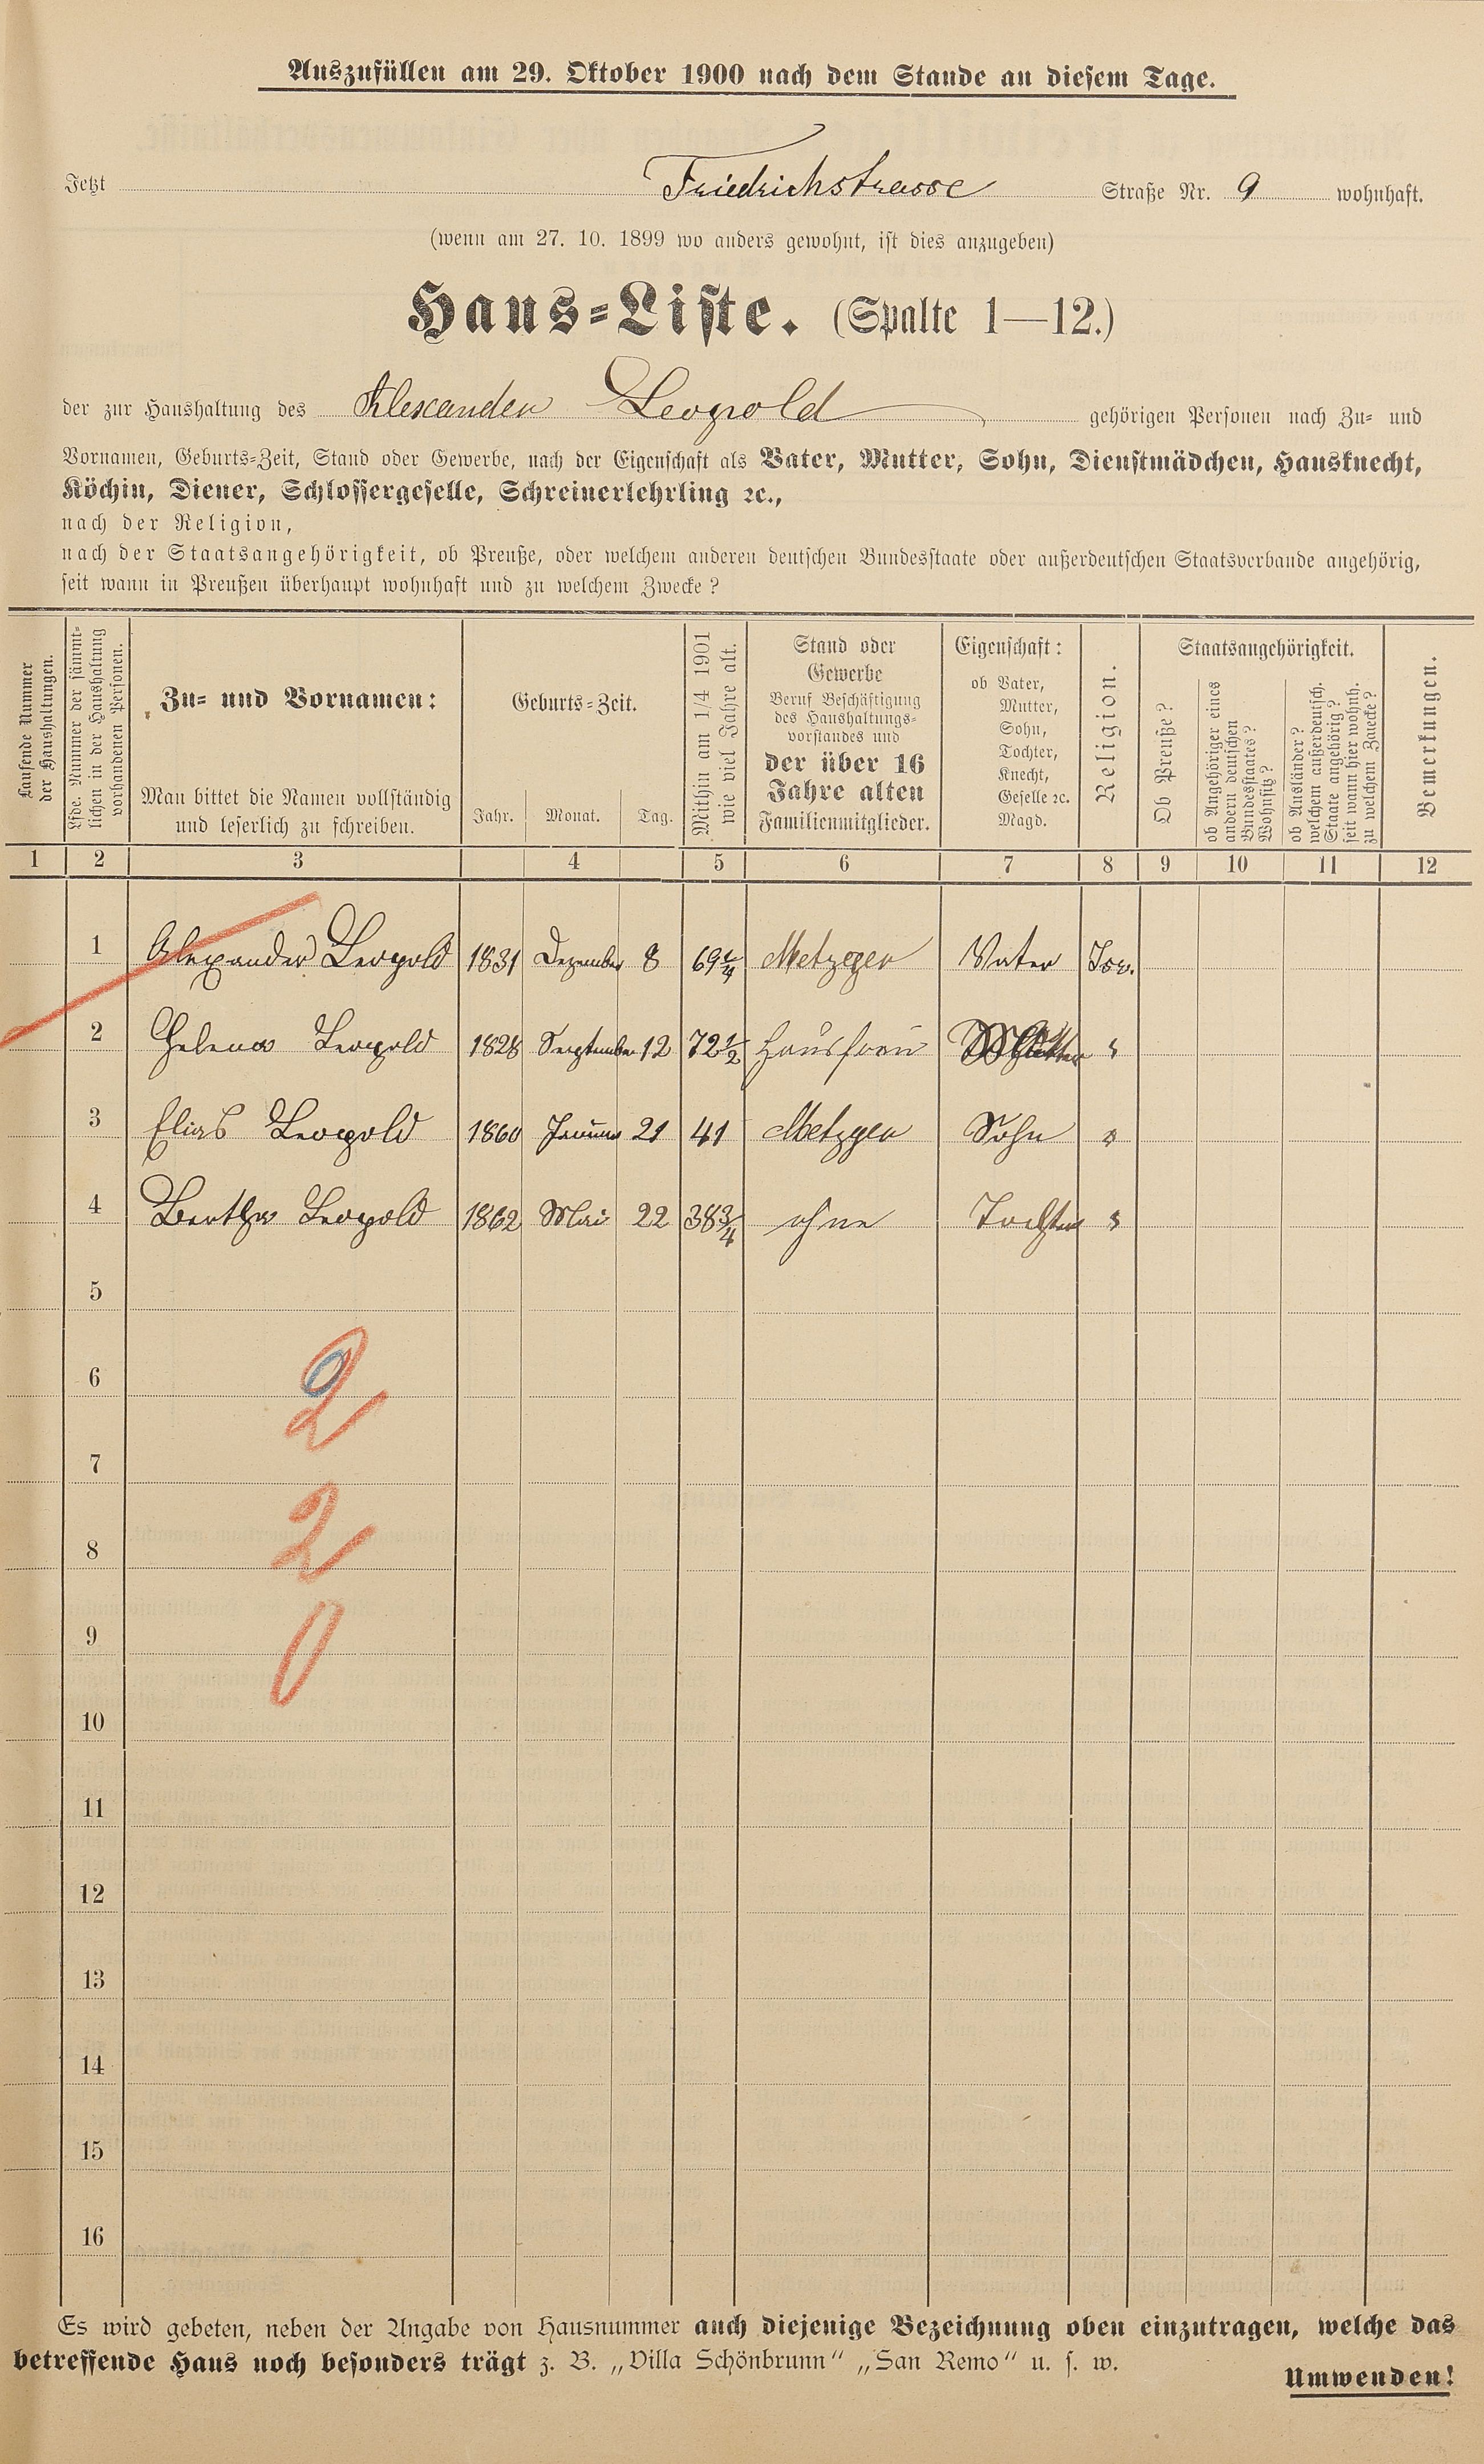 Auszufüllen am 29. Oktober 1900 nach dem Stande an diesem Tage.
Jetzt Friedrichstrasse Straße Nr. 9 wohnhaft.
(wenn am 27. 10. 1899 wo anders gewohnt, ist dies anzugeben)
Haus-Liste. (Spalte 1—12.)
der zur Haushaltung des Alexander Leopold gehörigen Personen nach Zu- und
Vornamen, Geburts-Zeit, Stand oder Gewerbe, nach der Eigenschaft als Vater, Mutter, Sohn, Dienstmädchen, Hausknecht,
Köchin, Diener, Schlossergeselle, Schreinerlehrling ꝛc.,
nach der Religion,
nach der Staatsangehörigkeit, ob Preuße, oder welchem anderen deutschen Bundesstaate oder außerdeutschen Staatsverbande angehörig,
seit wann in Preußen überhaupt wohnhaft und zu welchem Zwecke?
Laufende Nummer
der Haushaltungen.
Lfde. Nummer der sämmt-
lichen in der Haushaltung
vorhandenen Personen.
Zu- und Vornamen:
Man bittet die Namen vollständig
und leserlich zu schreiben.
Geburts-Zeit.
Jahr. Monat. Tag.
Mithin am 1/4 1901
wie viel Jahre alt.
Stand oder
Gewerbe
Beruf Beschäftigung
des Haushaltungs-
vorstandes und
der über 16
Jahre alten
Familienmitglieder.
Eigenschaft:
ob Vater,
Mutter,
Sohn,
Tochter,
Knecht,
Geselle ꝛc.
Magd.
Religion.
Staatsangehörigkeit.
Ob Preuße?
ob Angehöriger eines
andern deutschen
Bundesstaates?
Wohnsitz?
ob Ausländer?
welchem außerdeutsch.
Staate angehörig?
seit wann hier wohnh.
zu welchem Zwecke?
Bemerkungen.
1 2 3 4 5 6 7 8 9 10 11 12
1 Alexander Leopold 1831 Dezember 8 69¼ Metzger Vater Isr.
2 Helena Leopold 1828 September 12 72½ Hausfrau Mutter "
3 Elias Leopold 1860 Januar 21 41 Metzger Sohn "
4 Bertha Leopold 1862 Mai 22 38¾ ohne Tochter "
5
6
2
7
8
2
9
0
10
11
12
13
14
15
16
Es wird gebeten, neben der Angabe von Hausnummer auch diejenige Bezeichnung oben einzutragen, welche das
betreffende Haus noch besonders trägt z. B. „Villa Schönbrunn“ „San Remo“ u. s. w.
Umwenden!